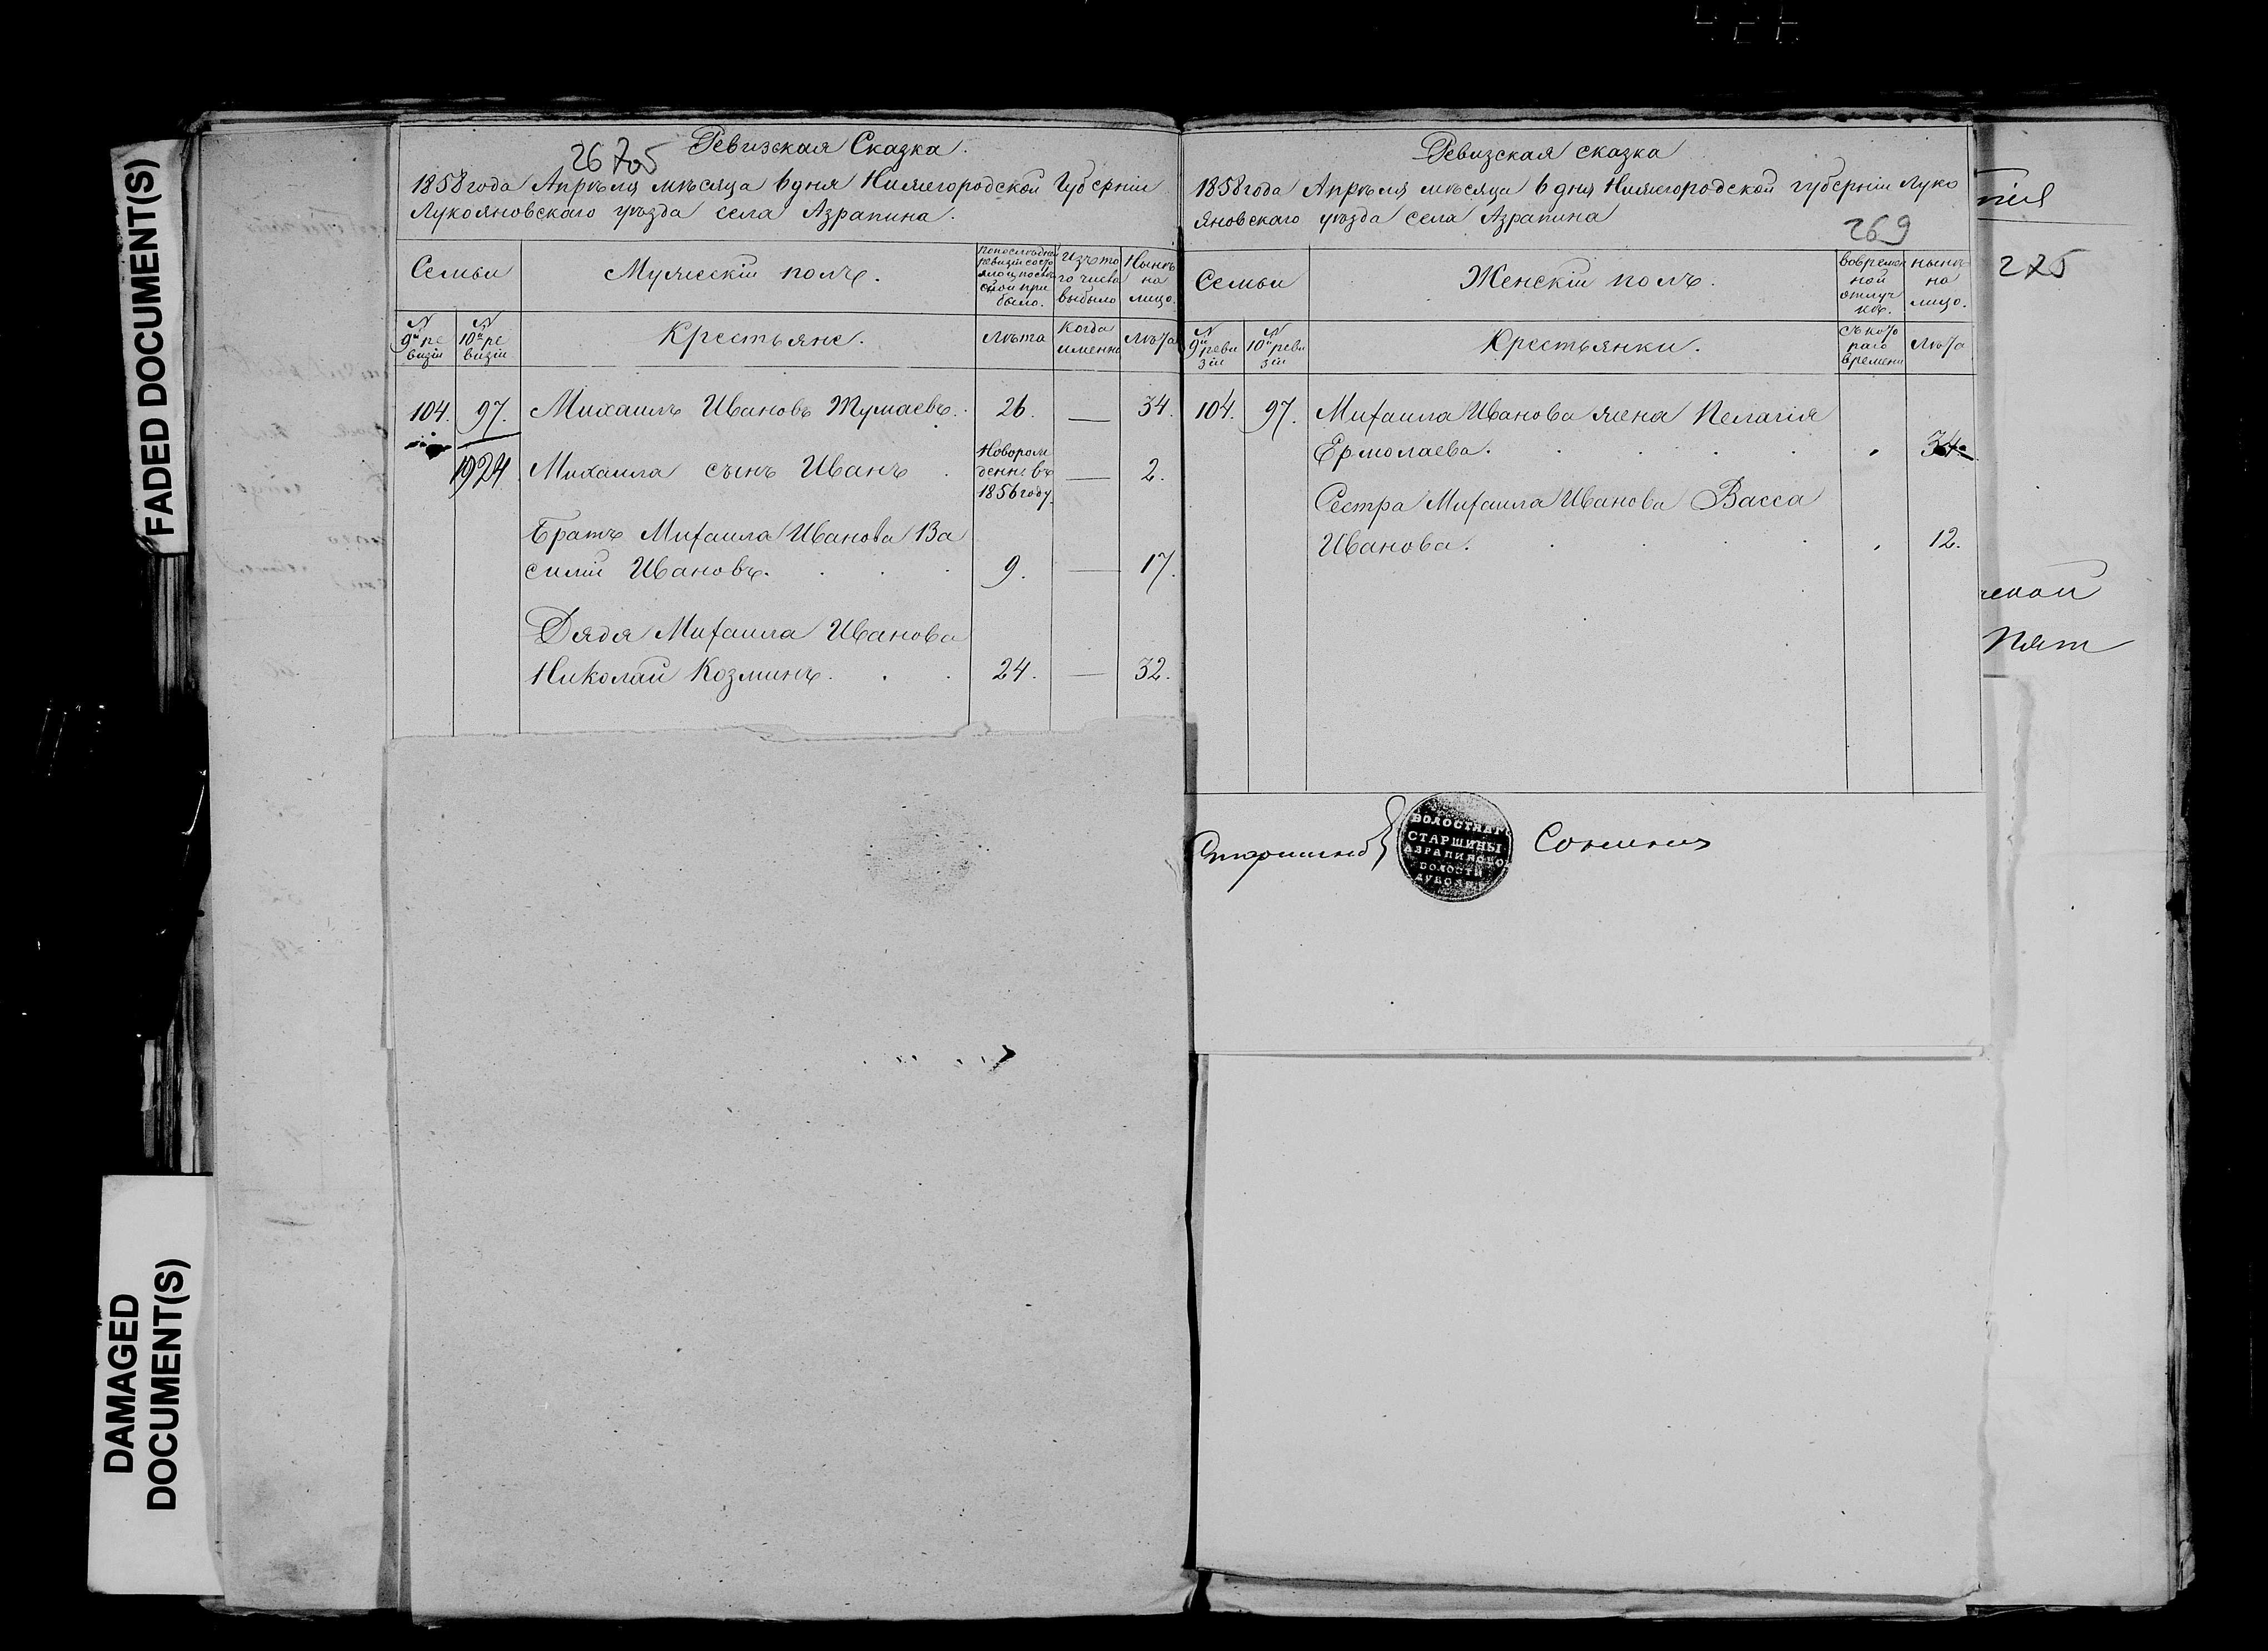 FADED DOCUMENT(S)
DAMAGED
DOCUMENT(S)
Ревизская Сказка.
1858 года Апрѣля мѣсяца 6 дня Нижегородской Губерніи
Лукояновскаго уѣзда села Азрапина.
Семьи
Мужескій полъ.
По послѣдней
ревизіи состо
яло и послѣ
оной при
было.
Изъ то
го числа
выбыло
Нынѣ
на
лицо.
N
9й ре
визіи
N
10й ре
визіи
Крестьяне.
лѣта
Когда
именно
лѣта
104. 97. Михаилъ Ивановъ Тумаевъ. 26. — 34.
1924 Михаила сынъ Иванъ
Новорож
денъ въ
1856 году.
— 2.
Братъ Михаила Иванова Ва
силій Ивановъ. 9. — 17.
Дядя Михаила Иванова
Николай Козминъ. 24. — 32.
Ревизская сказка
1858 года Апрѣля мѣсяца 6 дня Нижегородской губерніи Луко
яновскаго уѣзда села Азрапина
269
Семьи
Женскій полъ.
Во времен
ной
отлуч
кѣ.
нынѣ
на
лицо.
N
9й реви
зіи
N
10й реви
зіи
Крестьянки.
Съ кото
раго
времени
лѣта
104. 97. Михаила Иванова жена Пелагія
Ермолаева. 34.
Сестра Михаила Иванова Васса
Иванова. 12.
Старшина
ВОЛОСТНАГО
СТАРШИНЫ
АЗРАПИНСКО
ВОЛОСТИ
ЛУКОЯН
275
Пят